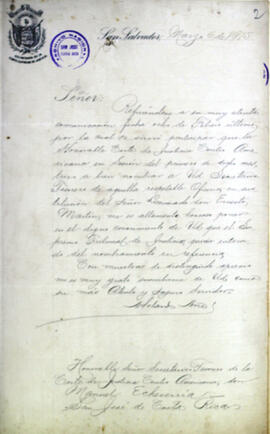 2
San Salvador, Marzo 6 de 1915
ARCHIVO NACIONAL
SAN JOSE
COSTA RICA
Señor:
Refiriéndome a su muy atenta
comunicación fecha ocho de Febrero último,
por la cual se sirvió participar que la
Honorable Corte de Justicia Centro Ame-
ricana en sesión del primero de dicho mes,
tuvo a bien nombrar a Ud Secretario
Tesorero de aquella respetable Oficina, en
del Señor Licenciado don Ernesto
Martin, me es altamente honroso poner
en el digno conocimiento de Ud que el Su-
premo Tribunal de Justicia, queda entera-
do del nombramiento en referencia.
Con muestras de distinguido aprecio
me es muy grato suscribirme de Ud como
su más Atento y Seguro Servidor
Honorable Señor Secretario Tesorero de la
Corte de Justicia Centro Americana, don
Manuel Echeverría
San José de Costa Rica